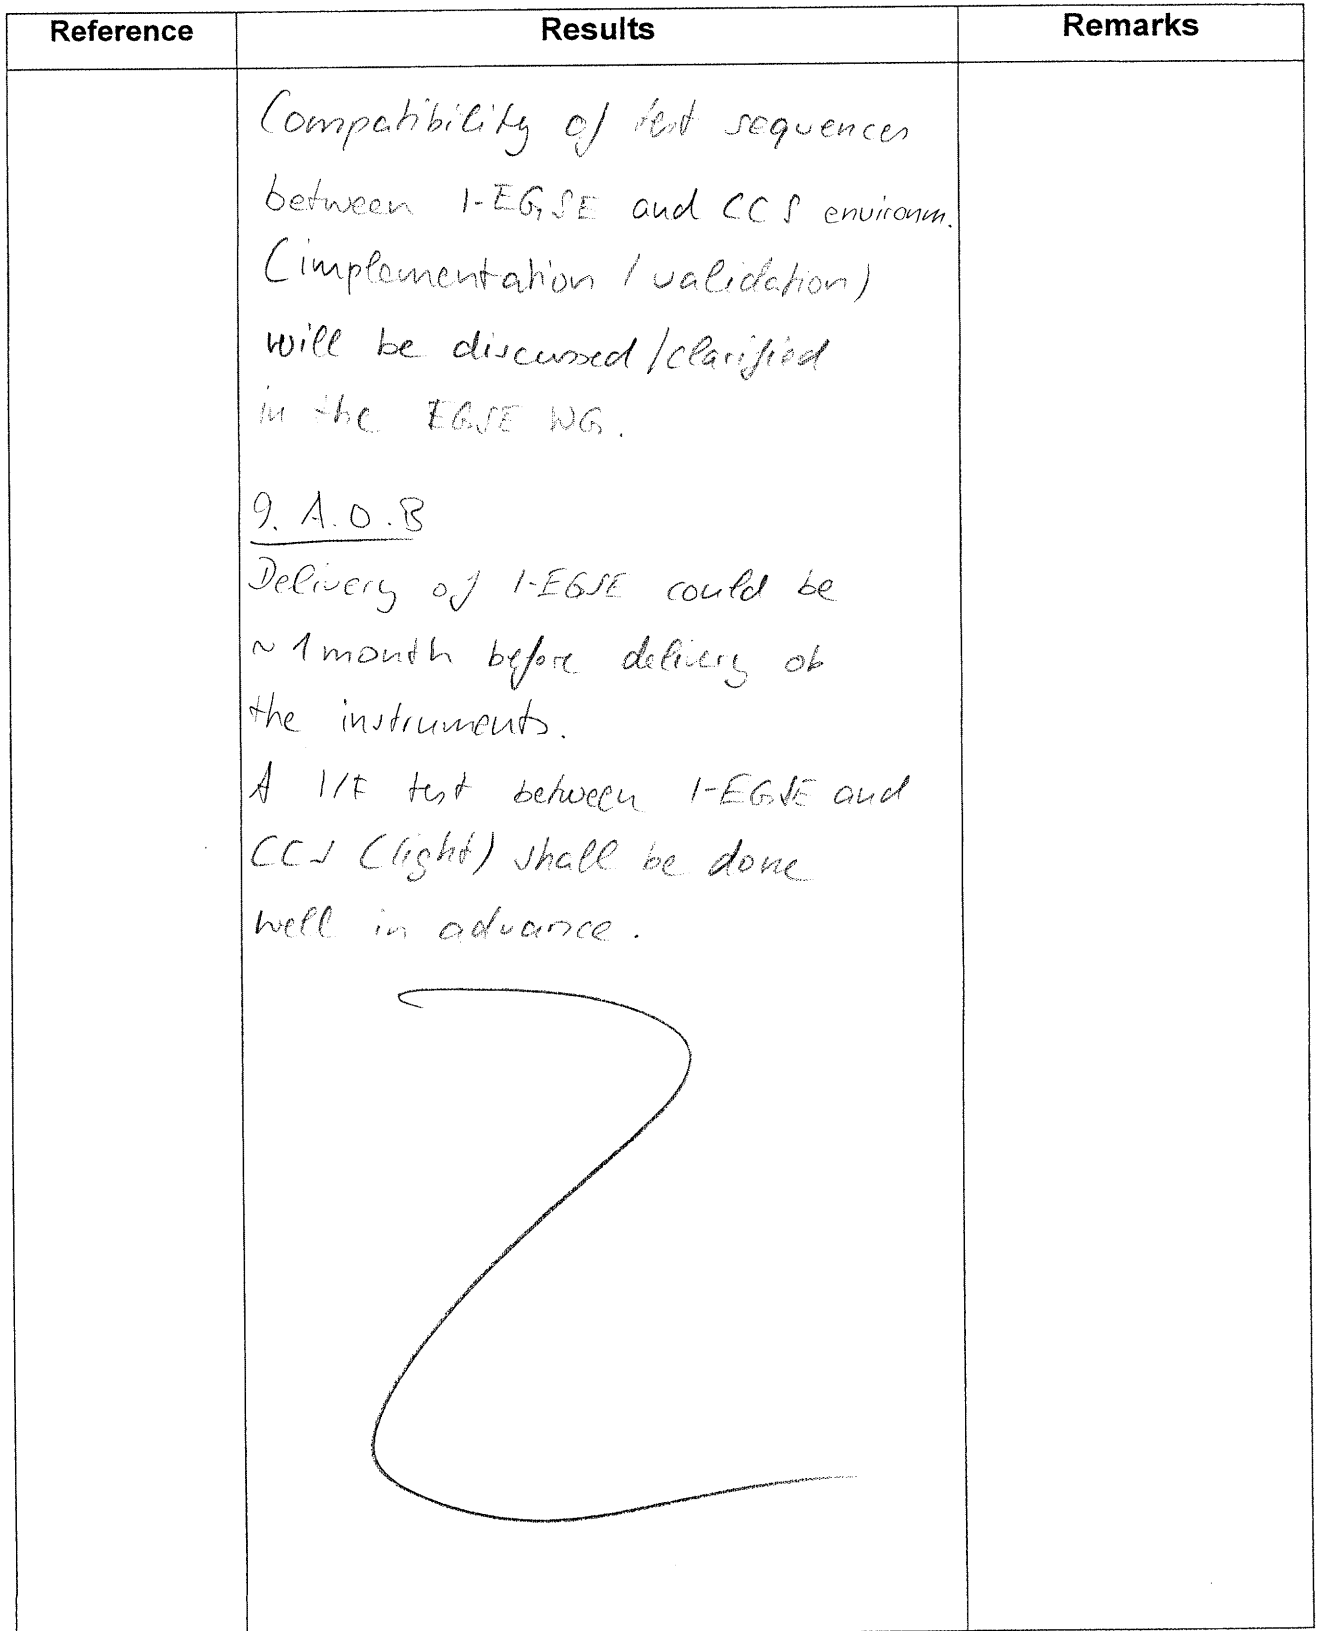 Reference Results Remarks
Compatibility of test sequences
between I-EGSE and CCS environm.
(implementation / validation)
will be discussed / clarified
in the EGSE WG.
9. A.O.B
Delivery of I-EGSE could be
~ 1 month before delivery of
the instruments.
A I/F test between I-EGSE and
CCS (light) shall be done
well in advance.